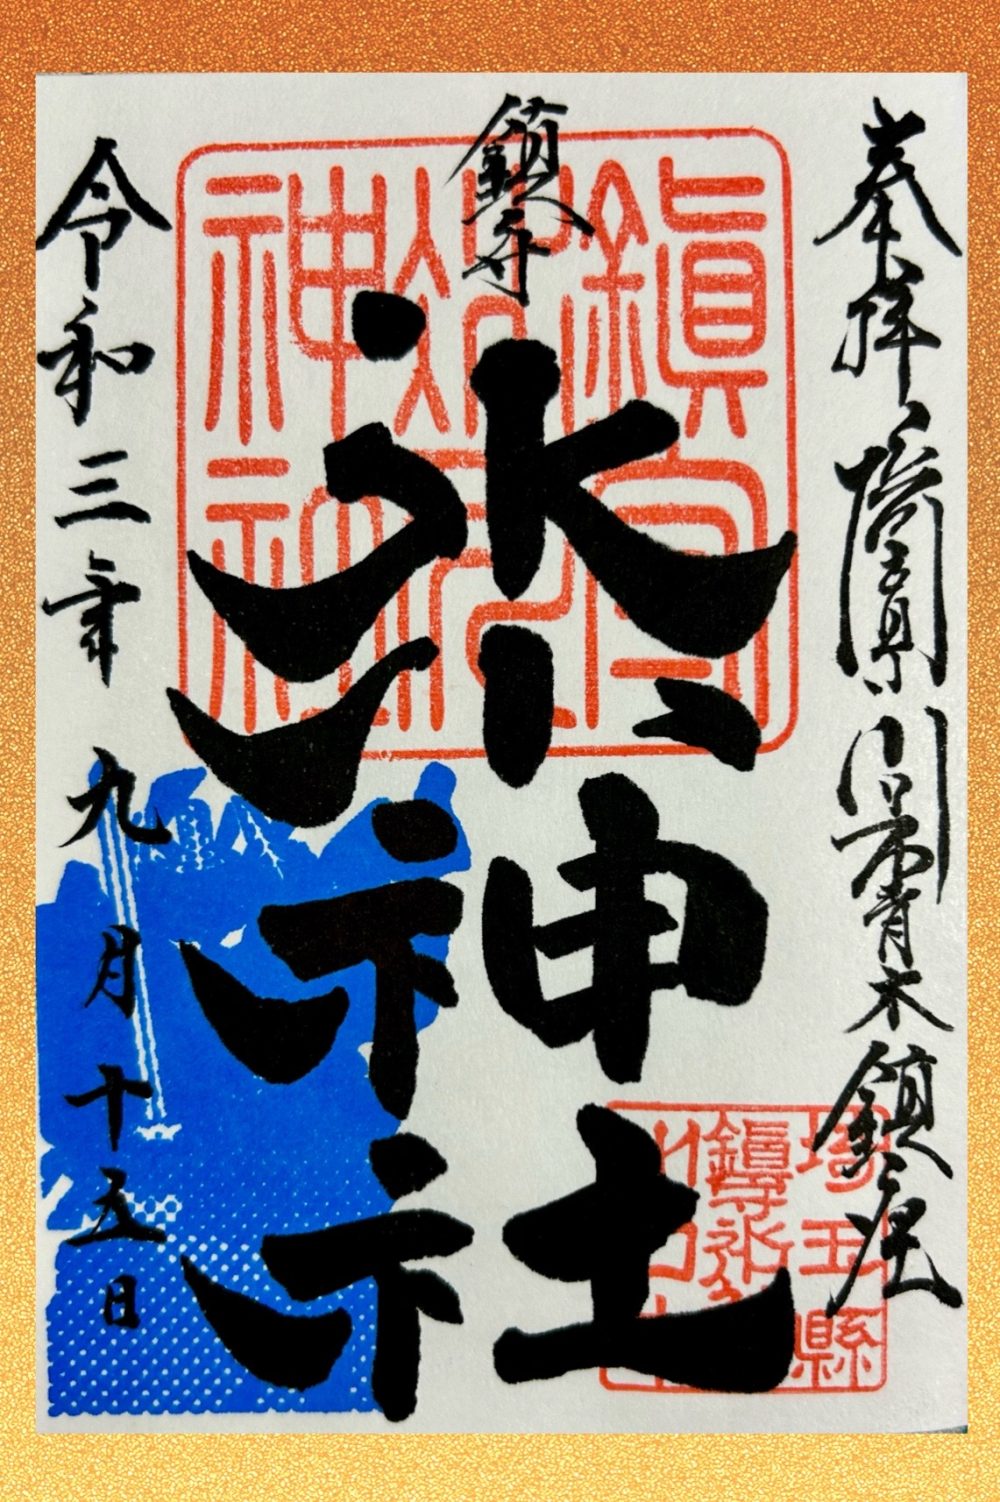 奉拝 埼玉県川口市青木鎮座
鎮守
氷川神社
令和三年九月十五日
鎮守
氷川
神社
埼玉縣
鎮守氷川
川口市